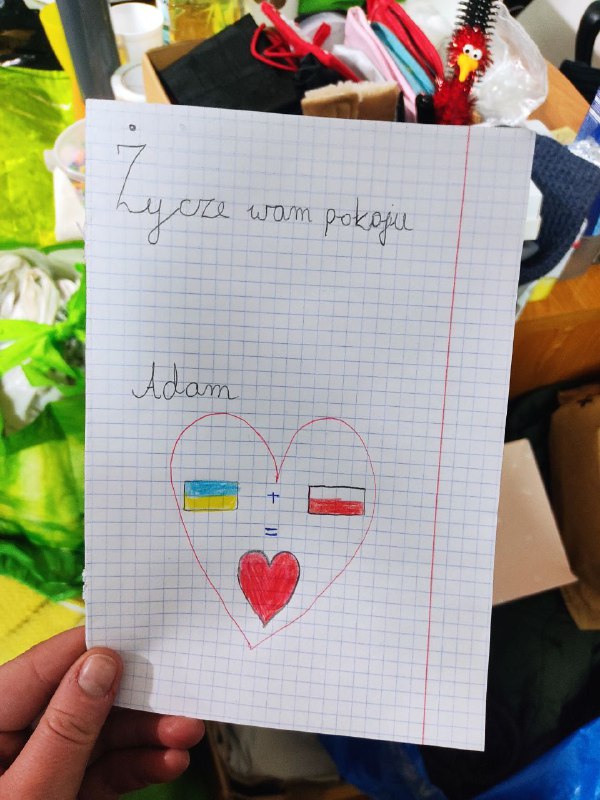 Życze wam pokoju
Adam
+
=